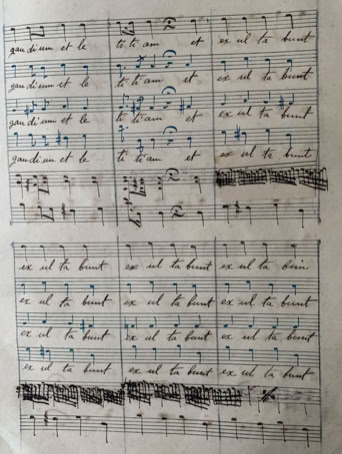 gau di um et le ti ti am et ex ul ta bunt
gau di um et le ti ti am et ex ul ta bunt
gau di um et le ti ti am et ex ul ta bunt
gau di um et le ti ti am et ex ul ta bunt
ex ul ta bunt ex ul ta bunt ex ul ta
ex ul ta bunt ex ul ta bunt ex ul ta bunt
ex ul ta bunt ex ul ta bunt ex ul ta bunt
ex ul ta bunt ex ul ta bunt ex ul ta bunt